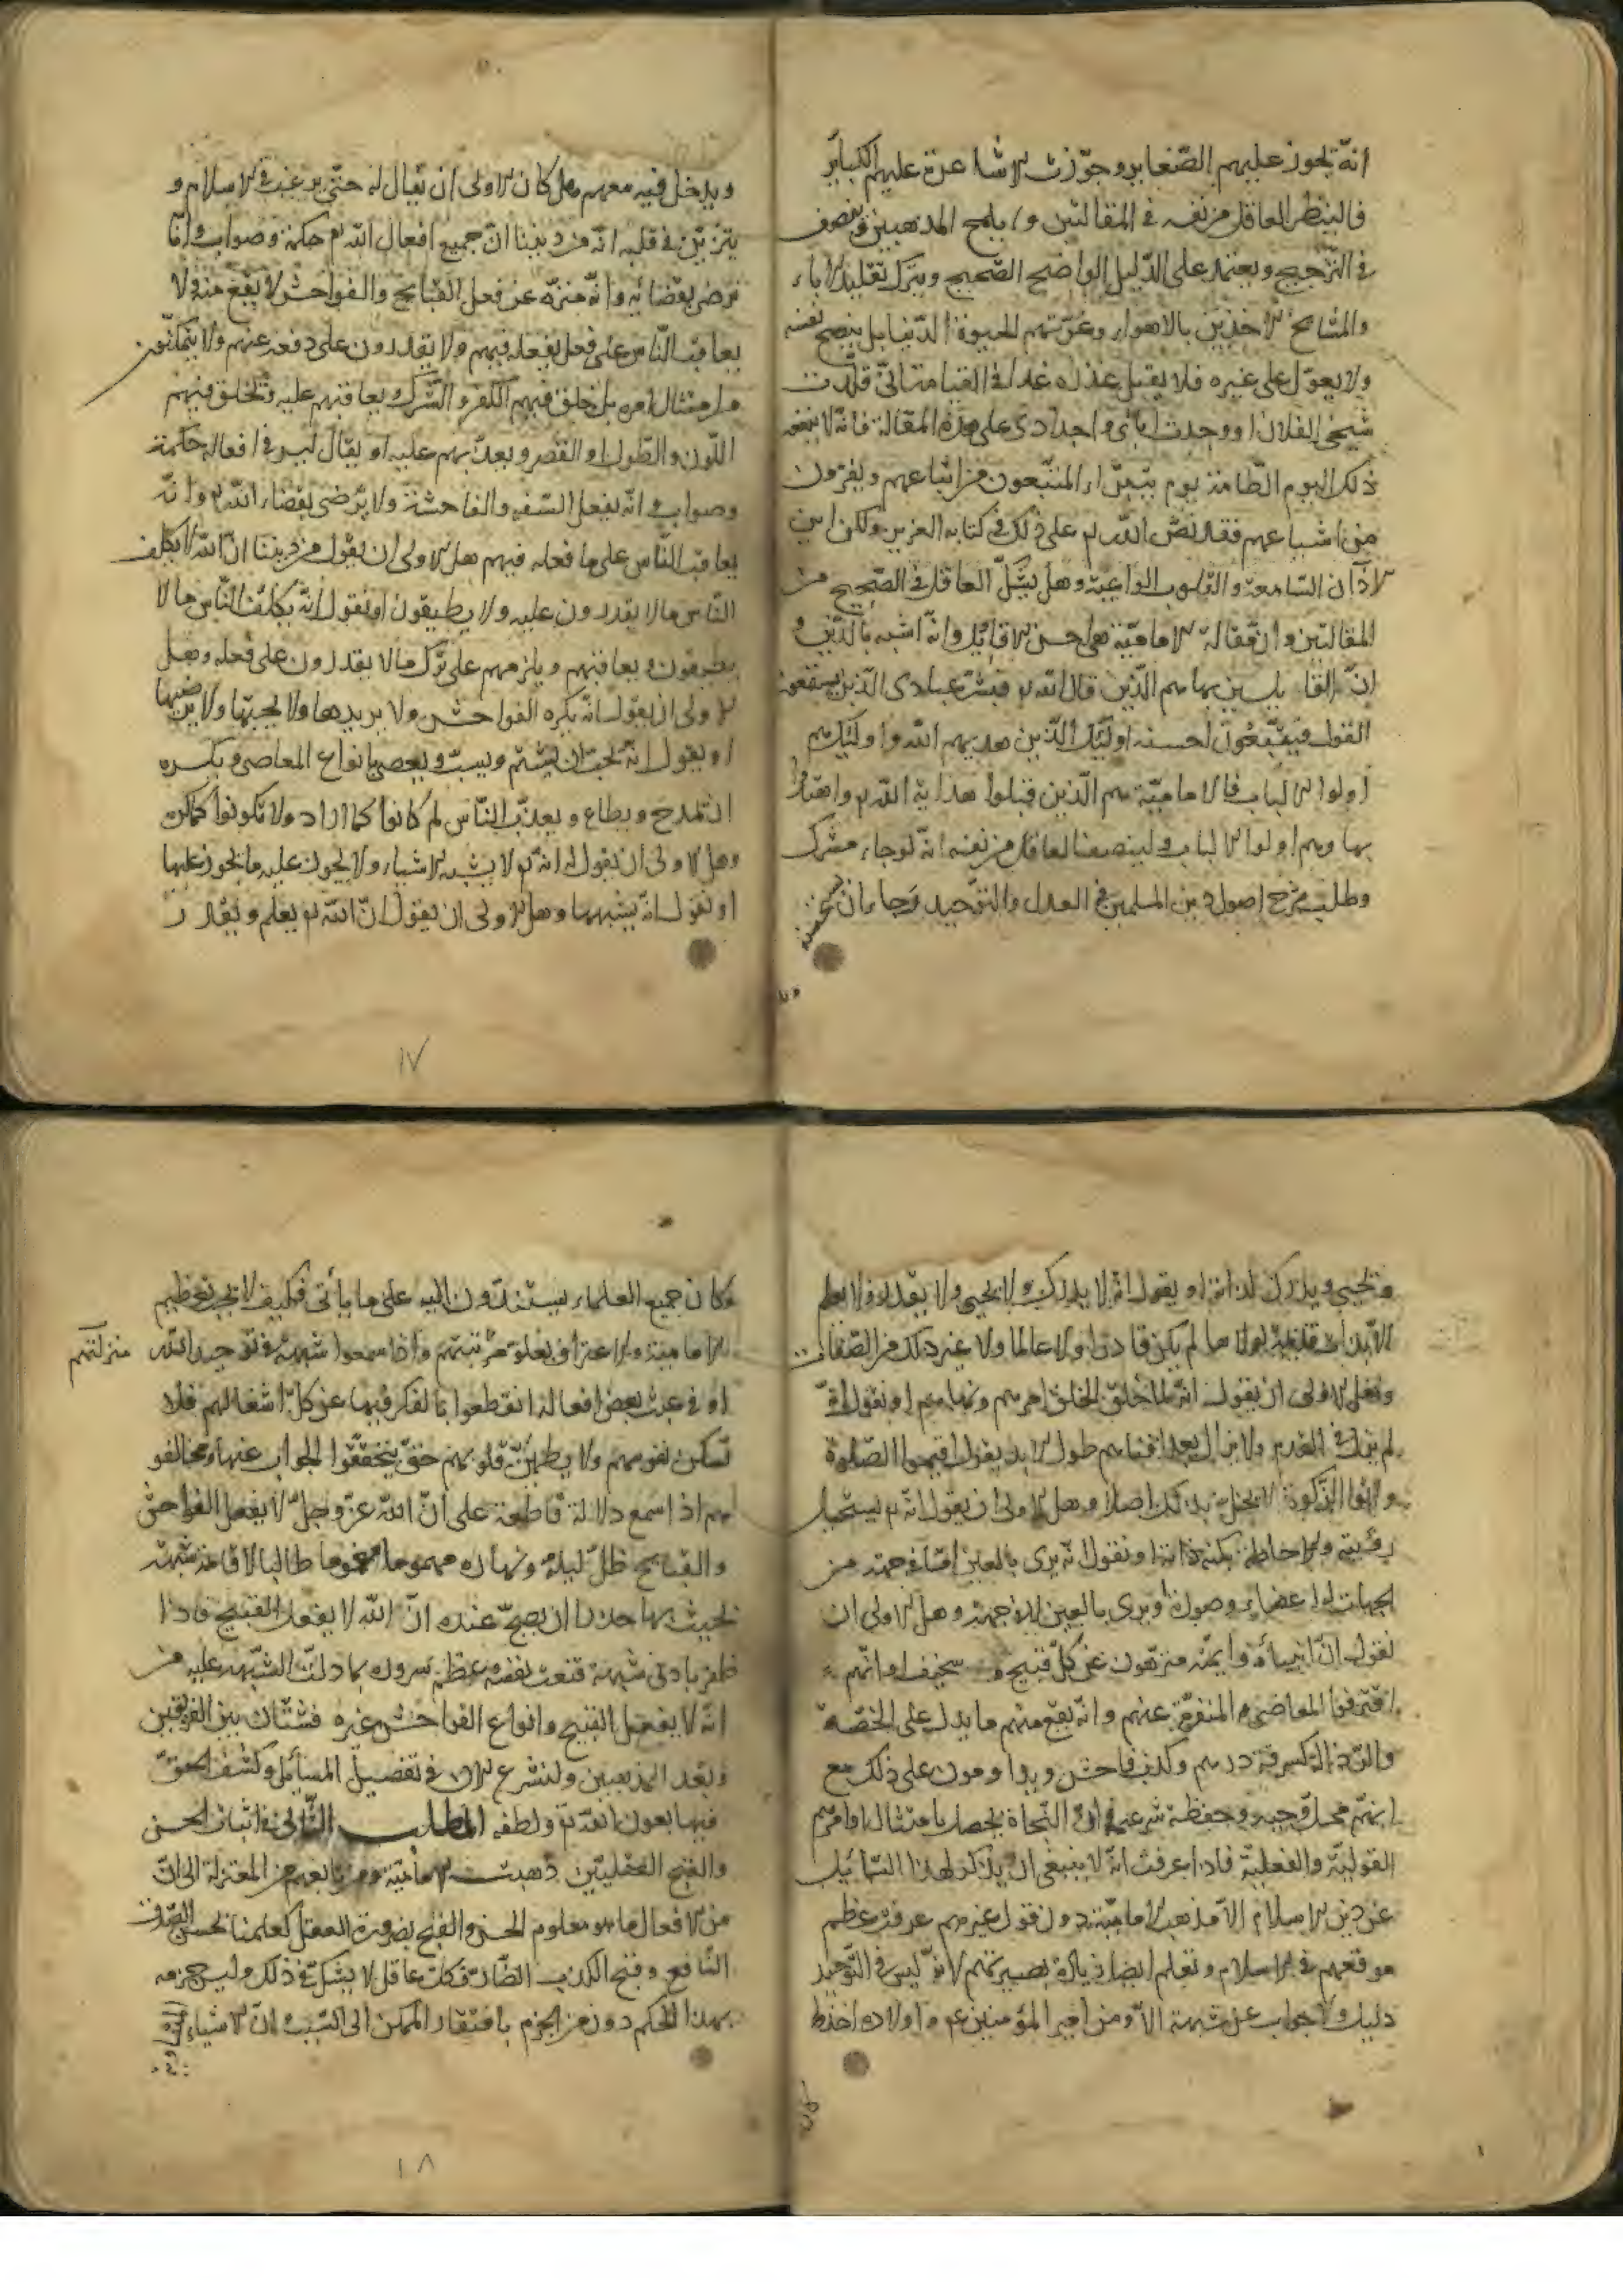 انه تجوز عليهم الصغاير وجوزت الاشاعرة عليهم الكبائر
فالينظر العاقل من نفسه في المقالتين و يلمح المذهبين و ينصف
في الترجيح ويعتمد على الدليل الواضح الصحيح ويترك تقليد الاباء
والمشايخ الاخذين بالاهواء وغرتهم الحيوة الدنيا بل ينصح نفسه
ولا يعول على غيره فلا يقبل عذره غدا في القيامة اني قلدت
شيخي الفلان او وجدت ابائي واجدادي على هذه المقالة فانه لا ينفعه
ذلك اليوم الطامة يوم يتبرأ المتبعون من اتباعهم ويفرون
من اشياعهم فقد نص الله تع على ذلك في كتابه العزيز ولكن اين
الاذآن السامعة والقلوب الواعية وهل يشك العاقل في الصحيح من
المقالتين وان مقالة الامامية هي احسن الاقاويل وانه اشبه بالدين و
ان القايلين بها هم الذين قال الله تع فبشر عبادي الذين يستمعون
القول فيتبعون احسنه اولئك الذين هديهم الله واولئك هم
اولوا الالباب فالامامية هم الذين قبلوا هداية الله تع واهتدوا
بها وهم اولوا الالباب ولينصف العاقل من نفسه انه لو جاء مشرك
وطلب شرح اصول دين المسلمين في العدل والتوحيد رجاء ان
ويدخل فيه معهم هل كان الاولى ان يقال له حتى يرغب في الاسلام و
يتزين في قلبه انه من ديننا ان جميع افعال الله تع حكمة وصواب وانا
نرضى بقضائه وانه منزه عن فعل القبايح والفواحش لا يقع منه ولا
يعاقب الناس على فعل يفعله فيهم ولا يقدرون على دفعه عنهم ولا يتمكنون
من امتثال امره بل خلق فيهم الكفر والشرك ويعاقبهم عليه وتخلق فيهم
اللون والطول او القصر ويعذبهم عليه او يقال ليس في افعاله حكمة
وصواب وانه يفعل السفه والفاحشة ولا نرضى بقضاء الله تع وانه
يعاقب الناس على ما فعله فيهم هل الاولى ان يقول من ديننا ان الله لا يكلف
الناس ما لا يقدرون عليه ولا يطيقون او نقول انه يكلف الناس ما لا
يطيقون ويعاقبهم ويلومهم على ترك ما لا يقدرون على فعله وهل
الاولى ان يقول انه يكره الفواحش ولا يريدها ولا يحبها ولا يرضيها
او يقول انه يحب ان يشتم ويسب ويعصى بانواع المعاصي ويكره
ان يمدح ويطاع ويعذب الناس لم كانوا كما اراد ولا تكونوا كما كره
وهل الاولى ان نقول انه تع لا يشبه الاشياء ولا يجوز عليه ما يجوز عليها
او نقول انه يشبهها وهل الاولى ان يقول ان الله تع يعلم ويقدر
١٧
ويحيي ويدرك لذاته او يقول انه لا يدرك ولا يحيي ولا يقدر ولا يعلم
الا بذوات قديمة لولاها لم يكن قادرا ولا عالما ولا غير ذلك من الصفات
وهل الاولى ان يقول انه لما خلق الخلق امرهم ونهاهم او نقول انه
لم يزل في القدم ولا يزال بعد افنائهم طول الابد يقول اقيموا الصلوة
واتوا الزكوة لا يخل بذلك اصلا وهل الاولى ان يقول انه تع يستحيل
رؤيته والاحاطة بكنه ذاته او نقول انه يرى بالعين اما في جهة من
الجهات له اعضاء وصورة او يرى بالعين لا في جهة وهل الاولى ان
نقول ان انبياءه وايمته منزهون عن كل قبيح و سخيف او انهم
اقترفوا المعاصي المنفرة عنهم وانه يقع منهم ما يدل على الخسة
والرذالة كسرقة درهم وكذب فاحش ويداومون على ذلك مع
انهم محل وحيه وحفظة شرعه وان النجاة يحصل بامتثال اوامرهم
القولية والفعلية فاذا عرفت انه لا ينبغي ان يذكر لهذا السائل
عن دين الاسلام الا مذهب الامامية دون قول غيرهم عرفت عظم
موقعهم في الاسلام وتعلم ايضا زيادة بصيرتهم لانه ليس في التوحيد
دليل ولا جواب عن شبهة الا ومن امير المؤمنين ع واولاده اخذ
كان
وكان جميع العلماء يستندون اليه على ما يأتي فكيف لا يجب تعظيم
الامامية والاعتراف بعلو مرتبتهم واذا سمعوا شبهة في توحيد الله
منزلتهم
او في عبث بعض افعاله انقطعوا بالفكر فيها عن كل اشغالهم فلا
تسكن نفوسهم ولا يطمئن قلوبهم حتى يتحققوا الجواب عنها ومخالفو
هم اذا سمع دلالة قاطعة على ان الله عز وجل لا يفعل الفواحش
والقبايح ظل ليله ونهاره مهموما مغموما طالبا لاقامة شبهة
يجيب بها حذرا ان يصح عنده ان الله لا يفعل القبيح فاذا
ظفر بادنى شبهة قنعت نفسه وعظم سروره بما دلت الشبهة عليه من
انه لا يفعل القبيح وانواع الفواحش غيره فشتان بين الفريقين
وبعد المذهبين ولنشرع الان في تفصيل المسائل وكشف الحق
فيها بعون الله تع ولطفه المطلب الثاني في اثبات الحسن
والقبح العقليين ذهبت الامامية ومن تابعهم من المعتزلة الى ان
من الافعال ما هو معلوم الحسن والقبح بضرورة العقل كعلمنا بحسن الصدق
النافع وقبح الكذب الضار فكل عاقل لا يشك في ذلك وليس جزمه
بهذا الحكم دون من الجزم بافتقار الممكن الى السبب وان الاشياء
١٨